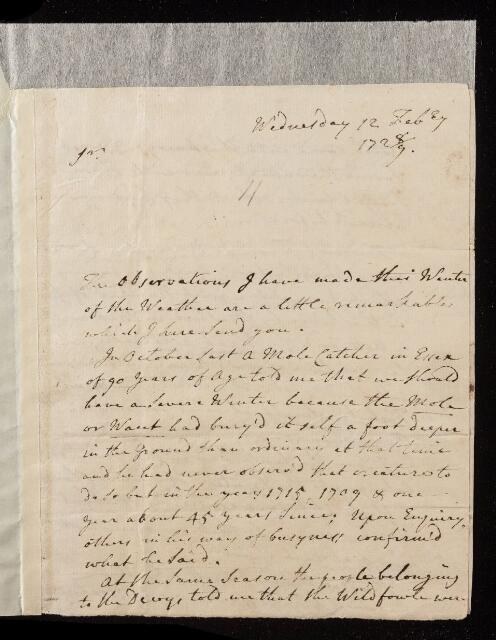 Wednesday 12 Febry
1728/9.
Sr.
4
The Observations I have made this Winter
of the Weather are a little remarkable
which I here send you.
In October last A Mole Catcher in Essex
of 90 Years of Age told me that we should
have a Severe Winter because the Mole
or Want had bury'd it self a foot deeper
in the Ground than ordinary at that time
and he had never observ'd that creature to
do so but in the years 1715, 1709 & one
year about 45 years Since; Upon Enquiry
others in his way of busyness confirm'd
what he said.
At the Same Season the people belonging
to the Decoys told me that the Wildfowle were